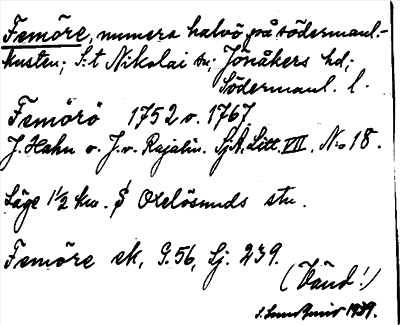 Femöre, numera halvö på södermanl.-
kusten; S:t Nikolai sn; Jönåkers hd;
Södermanl. l.
Femörö 1752 o. 1767.
J. Hahn o. J. v. Rajalin. SjA, Litt. VII, No 18.
Läge 1½ km. S Oxelösunds stn.
Femöre ek, G. 56, Sj. 239.
(Vänd!)
1939.